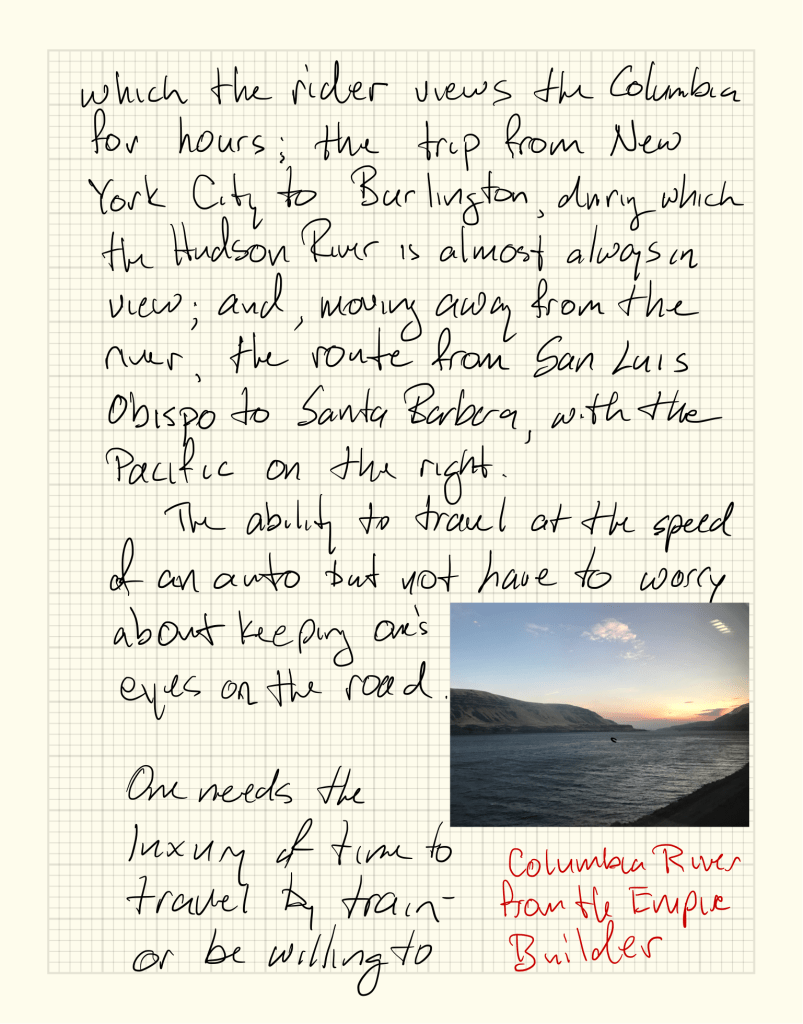 which the rider views the Columbia
for hours; the trip from New
York City to Burlington, during which
the Hudson River is almost always in
view; and, moving away from the
river, the route from San Luis
Obispo to Santa Barbera, with the
Pacific on the right.
The ability to travel at the speed
of an auto but not have to worry
about keeping one's
eyes on the road.
One needs the
luxury of time to
travel by train-
or be willing to
Columbia River
from the Empire
Builder